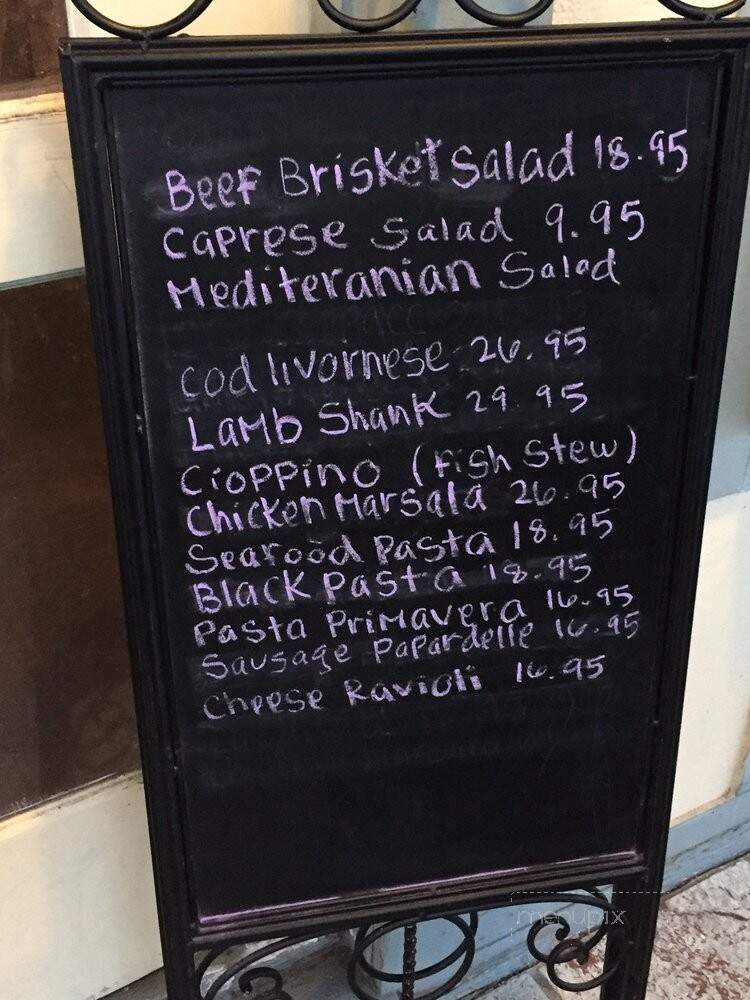 Beef Brisket Salad 18.95
Caprese Salad 9.95
Mediteranian Salad
Cod livornese 26.95
Lamb Shank 29.95
Cioppino (Fish Stew)
Chicken Marsala 26.95
Seafood Pasta 18.95
Black Pasta 18.95
Pasta Primavera 16.95
Sausage Papardelle 16.95
Cheese Ravioli 16.95
menupix